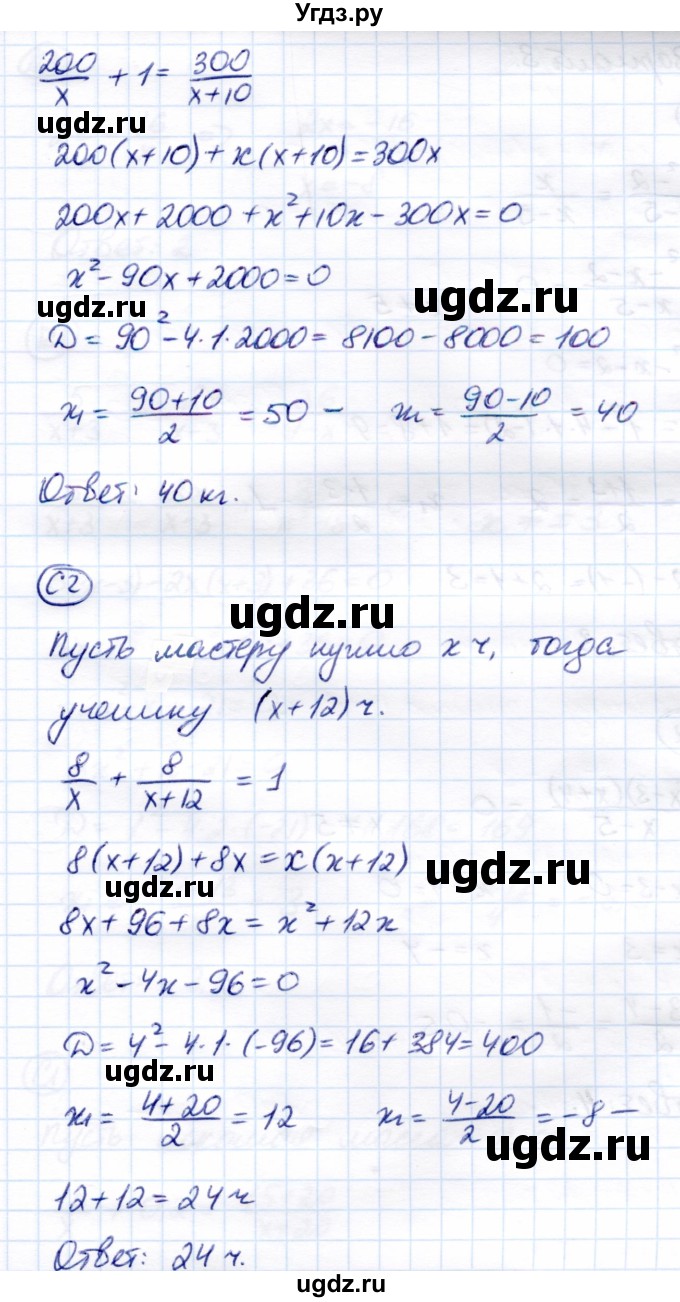 Угдз.ру
200/x + 1 = 300/(x+10)
ugdz.ru
200(x+10) + x(x+10) = 300x
200x + 2000 + x² + 10x - 300x = 0
x² - 90x + 2000 = 0
ugdz.ru
ugdz.ru
D = 90² - 4·1·2000 = 8100 - 8000 = 100
x₁ = (90+10)/2 = 50 - x₂ = (90-10)/2 = 40
Ответ: 40 кг.
C2
ugdz.ru
Пусть мастеру нужно x ч, тогда
ученику (x+12) ч.
8/x + 8/(x+12) = 1
8(x+12) + 8x = x(x+12)
ugdz.ru
ugdz.ru
8x + 96 + 8x = x² + 12x
x² - 4x - 96 = 0
D = 4² - 4·1·(-96) = 16 + 384 = 400
ugdz.ru
x₁ = (4+20)/2 = 12 x₂ = (4-20)/2 = -8 -
ugdz.ru
12 + 12 = 24 ч
Ответ: 24 ч.
ugdz.ru